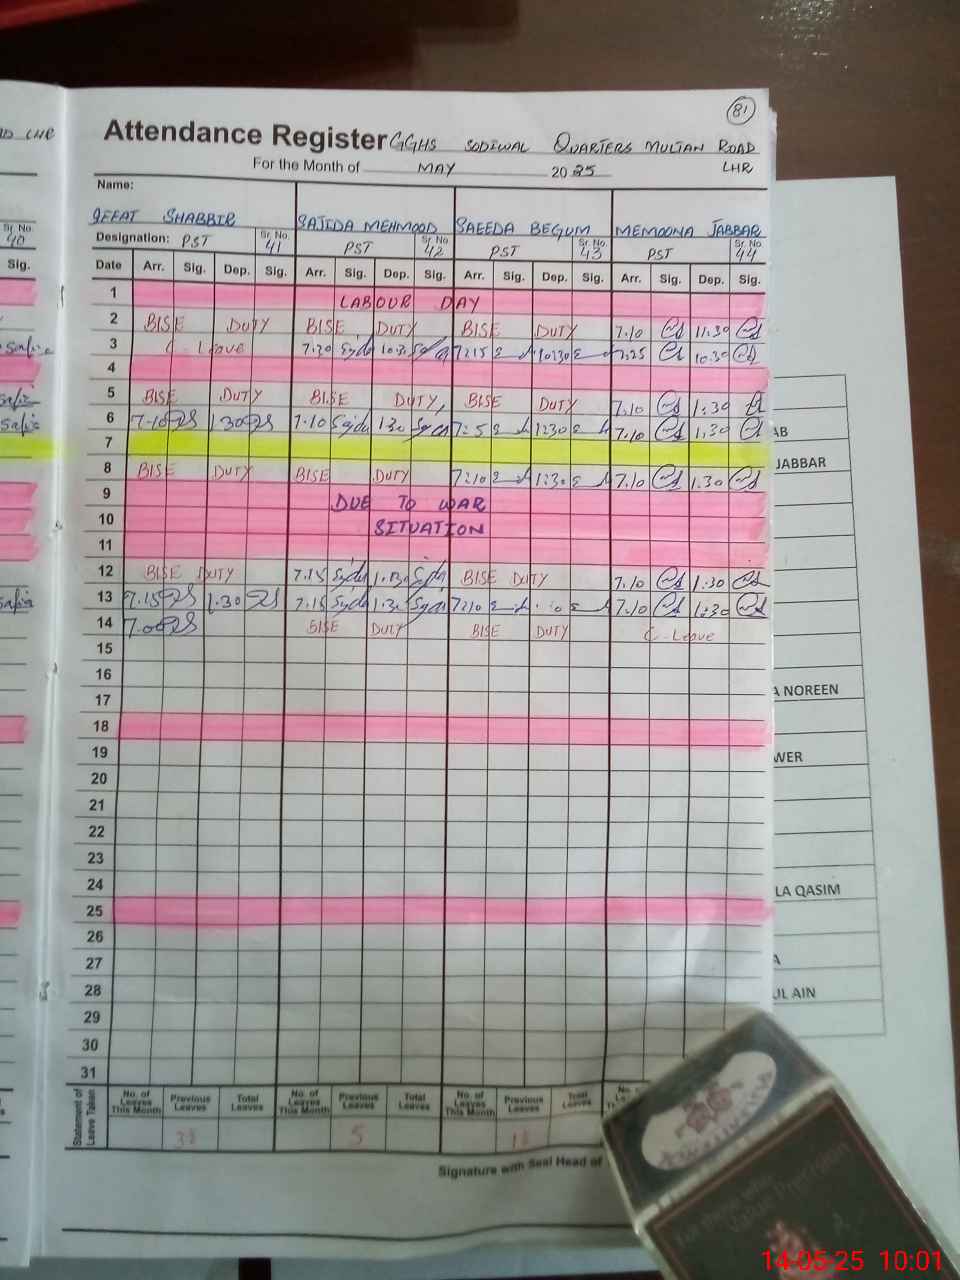 81
Attendance Register GGHS SODIWAL QUARTERS MULTAN ROAD
For the Month of MAY 2025 LHR
Name:
IFFAT SHABBIR SAJIDA MEHMOOD SAEEDA BEGUM MEMOONA JABBAR
Designation: PST Sr. No. 41 PST Sr. No. 42 PST Sr. No. 43 PST Sr. No. 44
Date Arr. Sig. Dep. Sig. Arr. Sig. Dep. Sig. Arr. Sig. Dep. Sig. Arr. Sig. Dep. Sig.
1 LABOUR DAY
2 BISE DUTY BISE DUTY BISE DUTY 7.10 11.30
3 C - Leave 7.20 10.30 7:15 10:30 7.25 10.30
4
5 BISE DUTY BISE DUTY, BISE DUTY 7.10 1.30
6 7.10 1.30 7.10 1.30 7:5 1:30 7.10 1.30
7
8 BISE DUTY BISE DUTY 7:10 1:30 7.10 1.30
9 DUE TO WAR
10 SITUATION
11
12 BISE DUTY 7.15 1.30 BISE DUTY 7.10 1.30
13 7.15 1.30 7.15 1.30 7:10 7.10 1.30
14 7.00 BISE DUTY BISE DUTY C - Leave
15
16
17
18
19
20
21
22
23
24
25
26
27
28
29
30
31
Statement of Leave Taken
No. of Leaves This Month Previous Leaves Total Leaves No. of Leaves This Month Previous Leaves Total Leaves No. of Leaves This Month Previous Leaves Total Leaves
5
Signature with Seal Head of
LHR
Sr. No.
40
Sig.
AB
JABBAR
A NOREEN
WER
LA QASIM
A
UL AIN
14-05-25 10:01